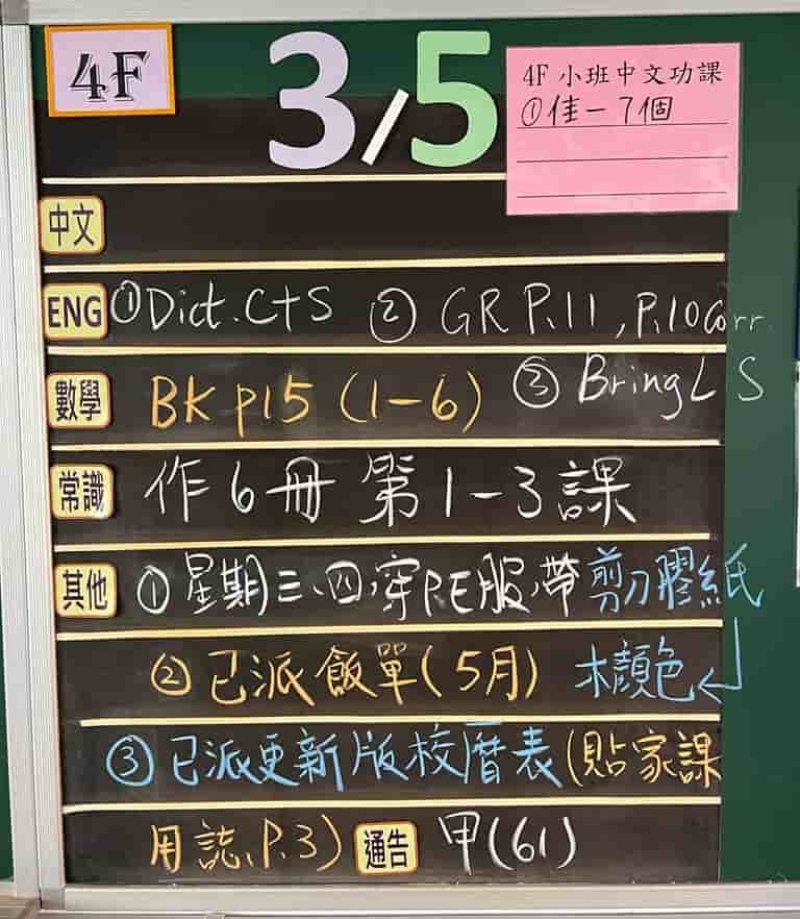 4F
3/5
4F 小班中文功課
①佳一 7個
中文
ENG ①Dict.C+S ② GR P.11, P.10 Corr.
③ Bring L S
數學 BK p15 (1-6)
常識 作6冊 第1-3課
其他 ①星期三、四,穿P.E服,帶剪刀膠紙
木顏色
②已派飯單(5月)
③已派更新版校曆表(貼家課
用誌,P.3) 通告 甲(61)